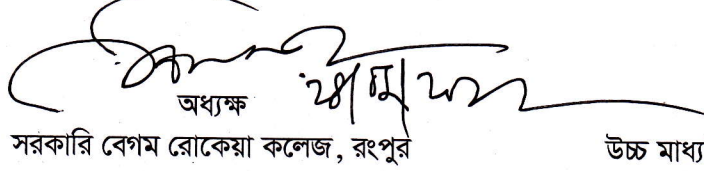 অধ্যক্ষ
সরকারি বেগম রোকেয়া কলেজ, রংপুর উচ্চ মাধ্য